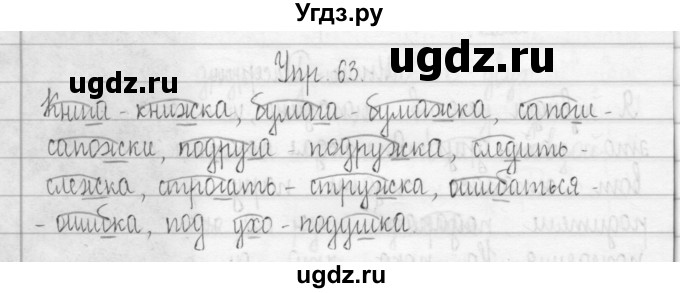 Угдз.ру
Упр. 63.
ugdz.ru
ugdz.ru
Книга - книжка, бумага - бумажка, сапоги -
сапожки, подруга подружка, следить
слежка, строгать - стружка, ошибаться
- ошибка, под ухо - подушка
ugdz.ru